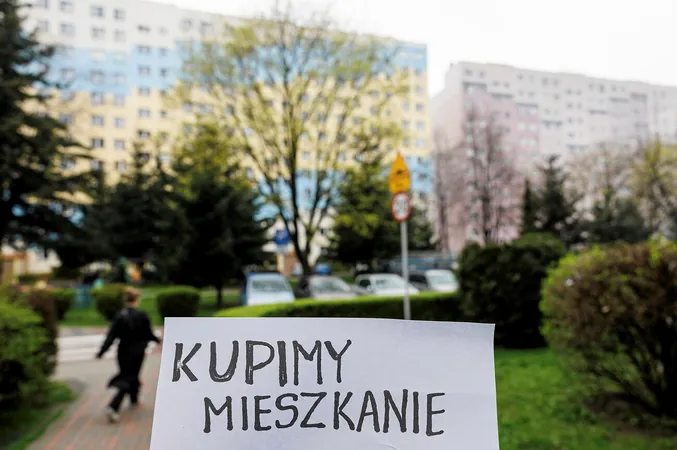 KUPIMY
MIESZKANIE